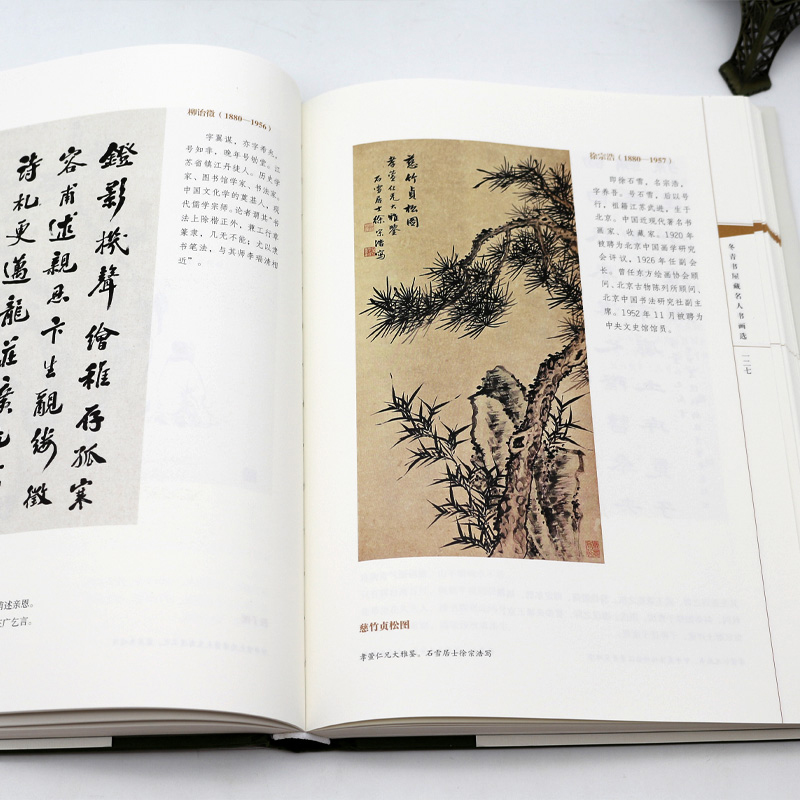 柳诒徵（1880—1956）
字翼谋，亦字希兆，
号知非，晚年号劬堂。江
苏省镇江丹徒人。历史学
家、图书馆学家、书法家、
中国文化学的奠基人，现
代儒学宗师。论者谓其“书
法上除楷正外，兼工行草
篆隶，几无不能；尤以隶
笔法，与其师李瑞清相
近”。
鐙影機聲繪稚存孤寒
容甫述親恩卞生覼縷徵
詩札更邁龍莊廣
述亲恩。
广乞言。
慈竹貞松圖
孝萱仁兄大雅鉴
石雪居士徐宗浩寫
徐宗浩（1880—1957）
即徐石雪，名宗浩，
字养吾，号石雪，后以号
行，祖籍江苏武进，生于
北京。中国近现代著名书
画家、收藏家。1920年
被聘为北京中国画学研究
会评议，1926年任副会
长。曾任东方绘画协会顾
问、北京古物陈列所顾问、
北京中国书法研究社副主
席。1952年11月被聘为
中央文史馆馆员。
慈竹贞松图
孝萱仁兄大雅鉴。石雪居士徐宗浩写
冬青书屋藏名人书画选
一二七